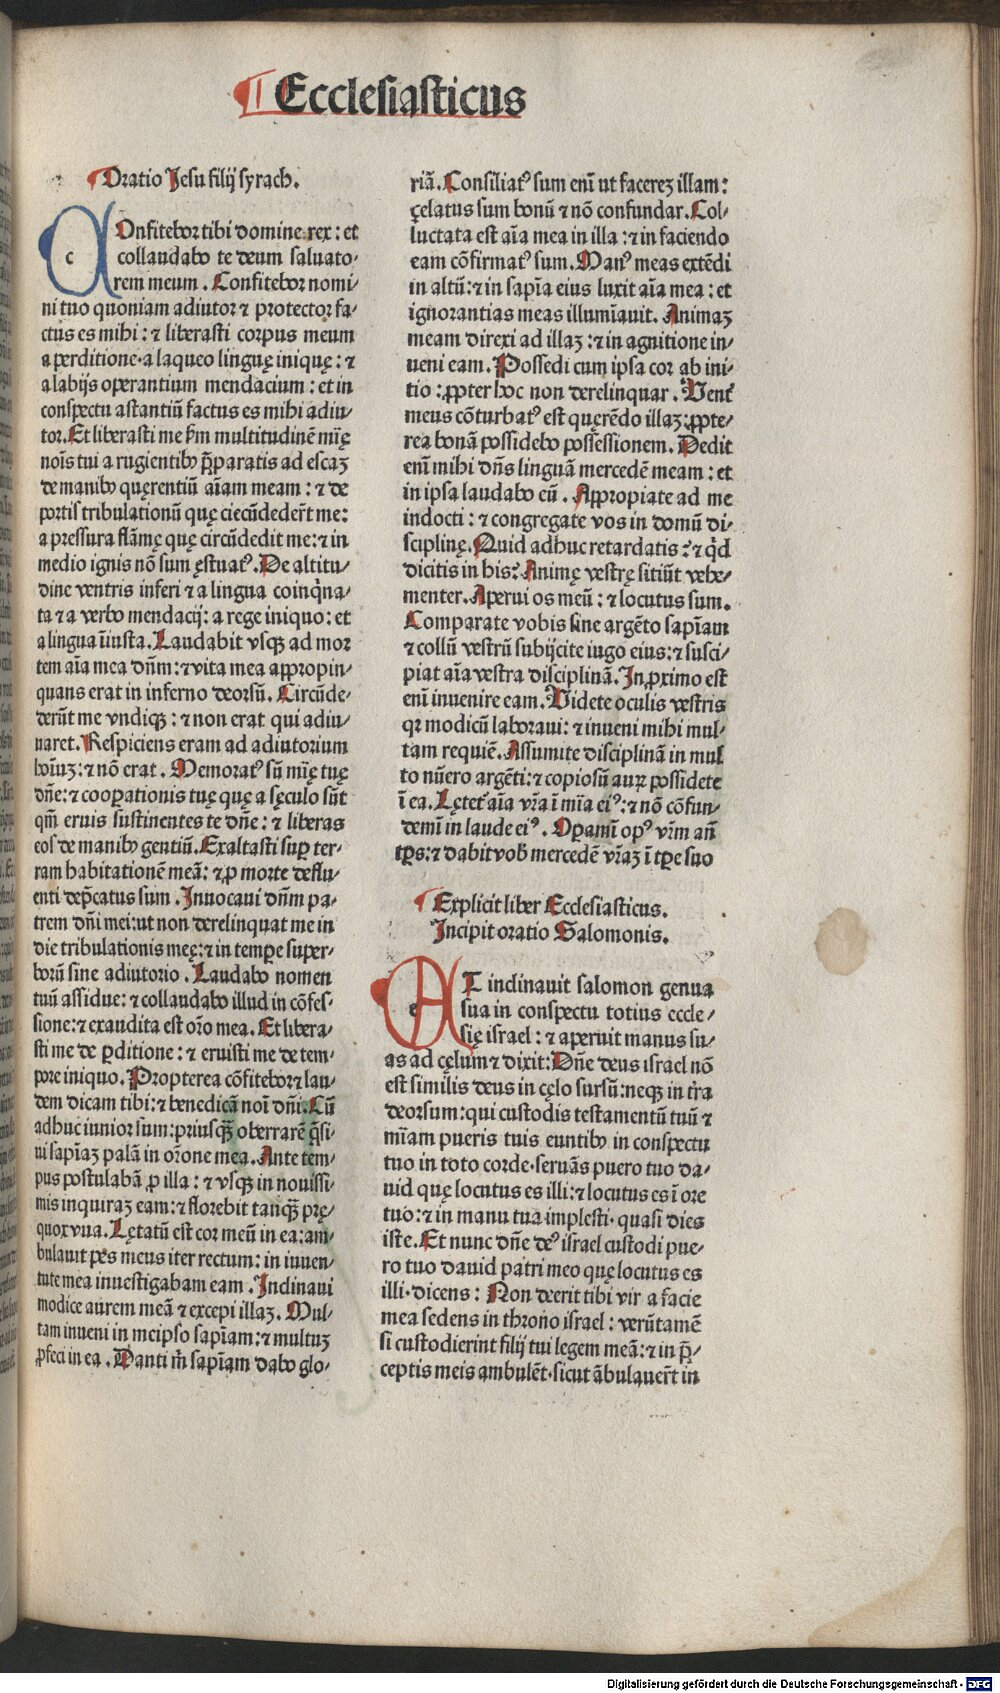 Ecclesiasticus
Oratio Jesu filij syrach.
c Onfitebor tibi domine rex: et
collaudabo te deum saluato-
rem meum. Confitebor nomi-
ni tuo quoniam adiutor ⁊ protector fa-
ctus es mihi: ⁊ liberasti corpus meum
a perditione·a laqueo linguę inique: ⁊
a labijs operantium mendacium: et in
conspectu astantiū factus es mihi adiu-
tor. Et liberasti me ẜm multitudinē mīę
noīs tui a rugientibꝰ p̄paratis ad escaꝫ
de manibꝰ quęrentiū aīam meam: ⁊ de
portis tribulationū quę circūdeder̄t me:
a pressura flāmę quę circūdedit me: ⁊ in
medio ignis nō sum ęstuatꝰ. De altitu-
dine ventris inferi ⁊ a lingua coinq̄na-
ta ⁊ a verbo mendacij: a rege iniquo: et
a lingua īiusta. Laudabit vsqꝫ ad mor
tem aīa mea dn̄m: ⁊ vita mea appropin-
quans erat in inferno deorsū. Circūde-
derūt me vndiqꝫ: ⁊ non erat qui adiu-
uaret. Respiciens eram ad adiutorium
hoīuꝫ: ⁊ nō erat. Memoratꝰ sū mīę tuę
dn̄e: ⁊ cooꝑationis tuę quę a sęculo sūt
qm̄ eruis sustinentes te dn̄e: ⁊ liberas
eos de manibꝰ gentiū. Exaltasti suꝑ ter-
ram habitationē meā: ⁊ ꝓ morte deflu-
enti dep̄catus sum. Inuocaui dn̄m pa-
trem dn̄i mei: ut non derelinquat me in
die tribulationis meę: ⁊ in tempe super-
borū sine adiutorio. Laudabo nomen
tuū assidue: ⁊ collaudabo illud in cōfes-
sione: ⁊ exaudita est or̄o mea. Et libera-
sti me de ꝑditione: ⁊ eruisti me de tem-
pore iniquo. Propterea cōfitebor ⁊ lau-
dem dicam tibi: ⁊ benedicā noī dn̄i. Cū
adhuc iunior sum: priusqꝫ̄ oberrarē q̄si-
ui sapīaꝫ palā in or̄one mea. Ante tem-
pus postulabā ꝓ illa: ⁊ vsqꝫ in nouissi-
mis inquiraꝫ eam: ⁊ florebit tanqꝫ̄ prę-
quox vua. Lętatū est cor meū in ea: am-
bulauit pes meus iter rectum: in iuuen-
tute mea inuestigabam eam. Inclinaui
modice aurem meā ⁊ excepi illaꝫ. Mul-
tam inueni in meipso sapīam: ⁊ multuꝫ
ꝓfeci in ea. Danti m̄ sapīam dabo glo-
riā. Consiliatꝰ sum enī ut facereꝫ illam:
çelatus sum bonū ⁊ nō confundar. Col-
luctata est aīa mea in illa: ⁊ in faciendo
eam cōfirmatꝰ sum. Manꝰ meas extēdi
in altū: ⁊ in sapīa eius luxit aīa mea: et
ignorantias meas illumīauit. Animaꝫ
meam direxi ad illaꝫ: ⁊ in agnitione in-
ueni eam. Possedi cum ipsa cor ab ini-
tio: ꝓpter hoc non derelinquar. Vent̄
meus cōturbatꝰ est quęrēdo illaꝫ: ꝓpte-
rea bonā possidebo possessionem. Dedit
enī mihi dn̄s linguā mercedē meam: et
in ipsa laudabo eū. Appropiate ad me
indocti: ⁊ congregate vos in domū di-
sciplinę. Quid adhuc retardatis? ⁊ q̇d
dicitis in his? Animę vestrę sitiūt vehe-
menter. Aperui os meū: ⁊ locutus sum.
Comparate vobis sine argēto sapīam
⁊ collū vestrū subijcite iugo eius: ⁊ susci-
piat aīa vestra disciplinā. In ꝓximo est
enī inuenire eam. Videte oculis vestris
qꝛ modicū laboraui: ⁊ inueni mihi mul-
tam requiē. Assumite disciplinā in mul
to nūero argēti: ⁊ copiosū auꝝ possidete
ī ea. Lętet̄ aīa vr̄a ī mīa eiꝰ: ⁊ nō cōfun-
demī in laude eiꝰ. Oꝑamī opꝰ vr̄m an̄
tp̄s: ⁊ dabit vob̄ mercedē vr̄aꝫ ī tꝑe suo
Explicit liber Ecclesiasticus.
Incipit oratio Salomonis.
e T inclinauit salomon genua
sua in conspectu totius eccle-
się israel: ⁊ aperuit manus su-
as ad cęlum ⁊ dixit: Dn̄e deus israel nō
est similis deus in cęlo sursū: neqꝫ in tr̄a
deorsum: qui custodis testamentū tuū ⁊
mīam pueris tuis euntibꝰ in conspectu
tuo in toto corde·seruās puero tuo da-
uid quę locutus es illi: ⁊ locutus es ī ore
tuo: ⁊ in manu tua implesti·quasi dies
iste. Et nunc dn̄e deꝰ israel custodi pue-
ro tuo dauid patri meo quę locutus es
illi·dicens: Non deerit tibi vir a facie
mea sedens in throno israel: verūtamē
si custodierint filij tui legem meā: ⁊ in p̄-
ceptis meis ambulēt·sicut ābulauer̄t in
Digitalisierung gefördert durch die Deutsche Forschungsgemeinschaft - DFG